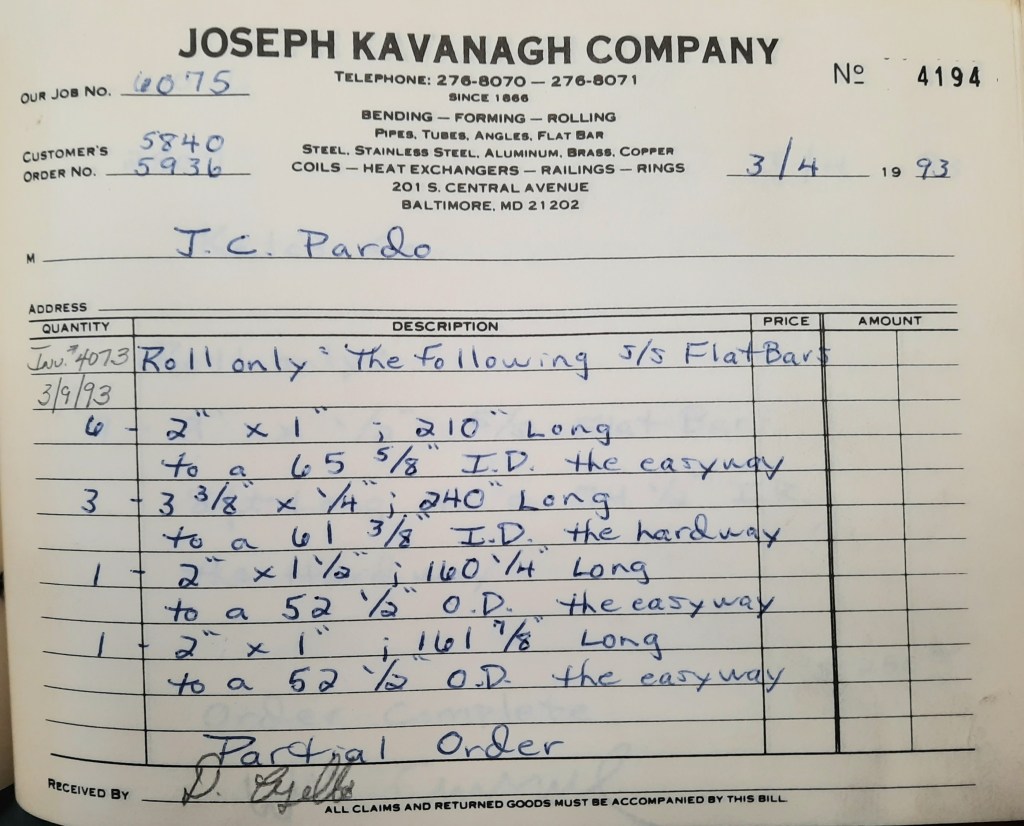 JOSEPH KAVANAGH COMPANY
TELEPHONE: 276-8070 — 276-8071
Nº 4194
OUR JOB NO. 6075
SINCE 1866
BENDING — FORMING — ROLLING
PIPES, TUBES, ANGLES, FLAT BAR
CUSTOMER'S ORDER NO. 5840 5936
STEEL, STAINLESS STEEL, ALUMINUM, BRASS, COPPER
COILS — HEAT EXCHANGERS — RAILINGS — RINGS
3/4 19 93
201 S. CENTRAL AVENUE
BALTIMORE, MD 21202
M J.C. Pardo
ADDRESS
QUANTITY DESCRIPTION PRICE AMOUNT
Inv. #4073 Roll only: The following S/S Flat Bars
3/9/93
6 - 2" x 1" ; 210" Long
to a 65 5/8" I.D. the easyway
3 - 3 3/8" x 1/4" ; 240" Long
to a 61 3/8" I.D. the hardway
1 - 2" x 1 1/2" ; 160 1/4" Long
to a 52 1/2" O.D. the easyway
1 - 2" x 1" ; 161 7/8" Long
to a 52 1/2" O.D. the easyway
Partial Order
RECEIVED BY D.
ALL CLAIMS AND RETURNED GOODS MUST BE ACCOMPANIED BY THIS BILL